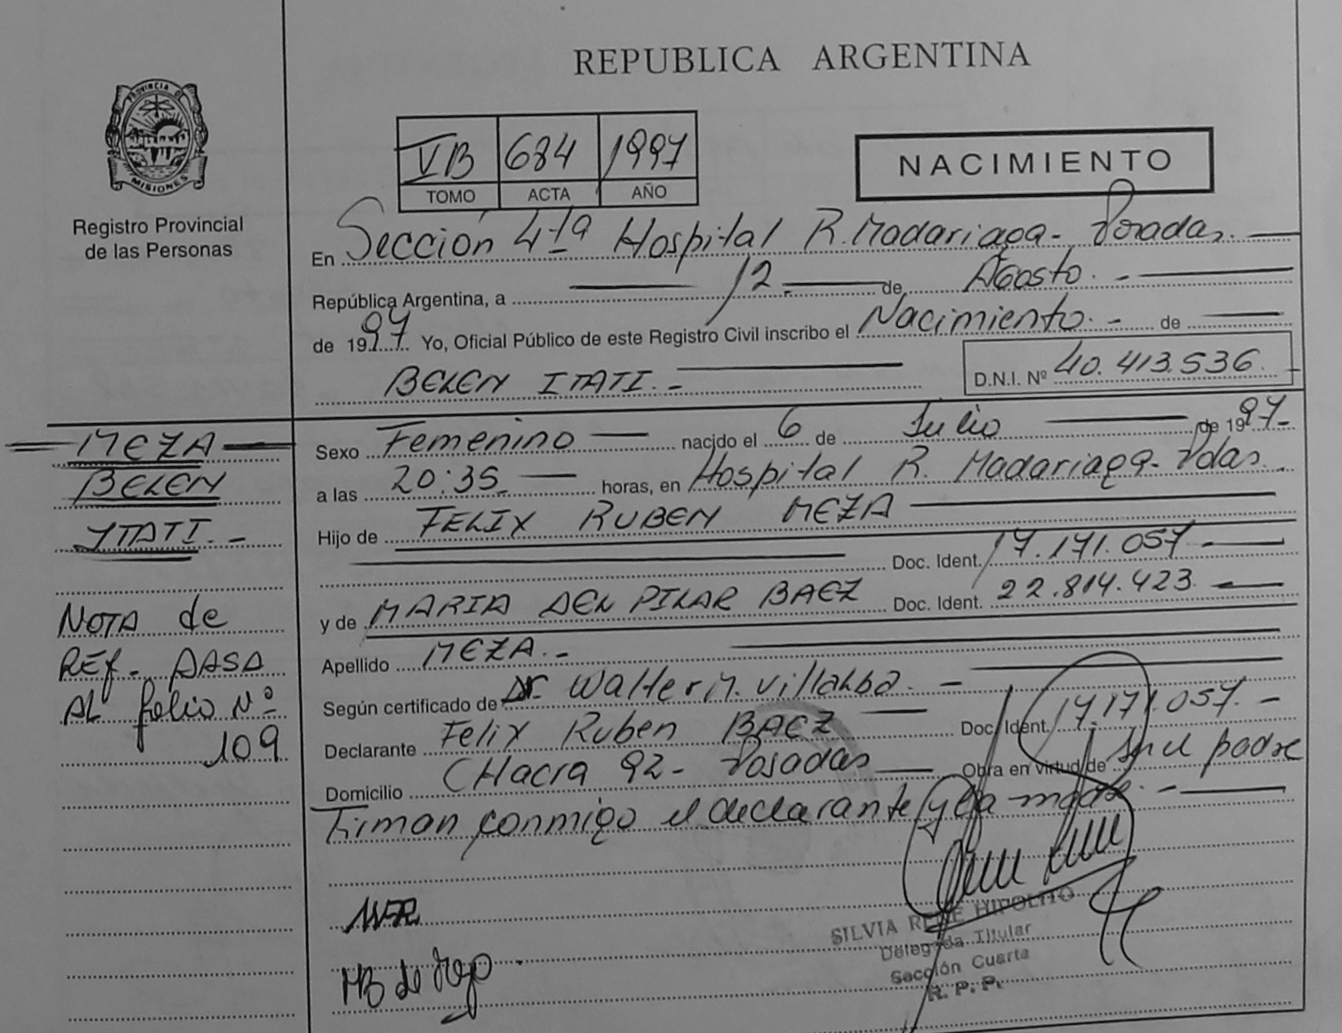 REPUBLICA ARGENTINA
PROVINCIA DE MISIONES
Registro Provincial
de las Personas
VB 684 1997
TOMO ACTA AÑO
NACIMIENTO
En Sección 4ta Hospital R. Madariaga - Posadas. -
República Argentina, a 12 - de Agosto. -
de 1997. Yo, Oficial Público de este Registro Civil inscribo el Nacimiento. - de
BELEN ITATI. -
D.N.I. Nº 40.413.536. -
MEZA
BELEN
YTATI. -
Sexo Femenino nacido el 6 de Julio de 1997. -
a las 20:35 horas, en Hospital R. Madariaga - Pdas.
Hijo de FELIX RUBEN MEZA
Doc. Ident. 17.171.057
y de MARIA DEL PILAR BAEZ Doc. Ident. 22.814.423
Apellido MEZA. -
NOTA de
REF. PASA
AL folio Nº
109
Según certificado de Dr. Walter M. Villalba. -
Declarante Felix Ruben BAEZ Doc. Ident. 17.171.057. -
Domicilio CHacra 92 - Posadas Obra en virtud de Sn el padre
Firman conmigo el declarante y la madre. -
MB de
SILVIA RENE HIPOLITO
Delegada Titular
Sección Cuarta
R. P. P.